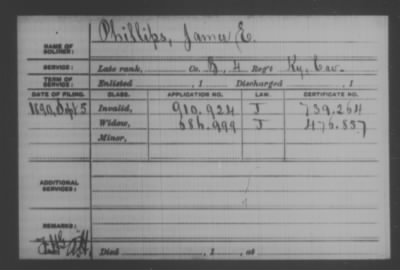 NAME OF SOLDIER: Phillips, James E.
SERVICE: Late rank, Co. B, 4 Reg't Ky. Cav.
TERM OF SERVICE: Enlisted , 1 Discharged , 1
DATE OF FILING. CLASS. APPLICATION NO. LAW. CERTIFICATE NO.
1890, Sept 5 Invalid, 910.924 J 739.264
Widow, 686.999 J 476.837
Minor,
ADDITIONAL SERVICES:
REMARKS:
Died , 1 , at